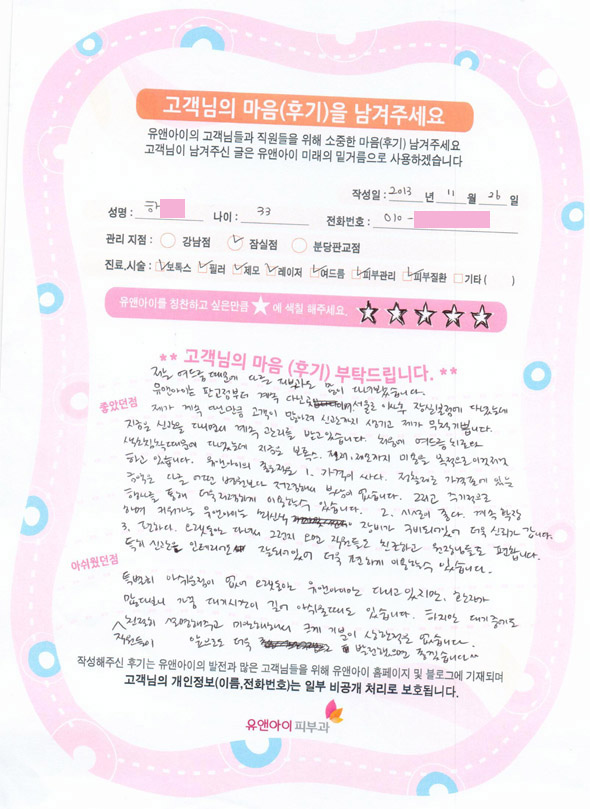 고객님의 마음(후기)을 남겨주세요
유앤아이의 고객님들과 직원들을 위해 소중한 마음(후기) 남겨주세요
고객님이 남겨주신 글은 유앤아이 미래의 밑거름으로 사용하겠습니다
작성일 : 2013 년 11 월 26 일
성명 : 하 나이 : 33 전화번호 : 010 -
관리 지점 : 강남점 잠실점 분당판교점
진료,시술 : 보톡스 필러 제모 레이저 여드름 피부관리 피부질환 기타 ( )
유앤아이를 칭찬하고 싶은만큼 ★ 에 색칠 해주세요.
** 고객님의 마음 (후기) 부탁드립니다. **
저는 여드름 때문에 다른 피부과도 많이 다녀봤습니다.
좋았던점
유앤아이는 판교점부터 계속 다신 서울로 이사후 잠실본점에 다녔는데
제가 계속 다닌만큼 고객이 많아져 신관까지 생기고 제가 뿌듯하기됩니다.
지금은 신관을 다니면서 계속 관리를 받고있습니다. 처음에 여드름 치료와
때문에 다녔는데 지금은 보톡스, 제모까지 미용을 목적으로
하고 있습니다. 유앤아이의 좋은점은 1. 가격이 싸다. 정찰제로 가격표에 있는
금액은 다른 어떤 병원보다 저렴해서 부담이 없습니다. 그리고 주기적으로
행사를 통해 더욱 저렴하게 이용할수 있습니다. 2. 시설이 좋다. 계속 확장
하며 커워가는 유앤아이는 최신식 장비가 구비되어있어 더욱 신뢰가 갑니다.
3. 친절하다. 오랫동안 다녀서 그런지 모든 직원들도 친근하고 원장님들도 편합니다.
특히 신관은 인테리어 잘되어있어 더욱 편하게 이용할수 있습니다.
아쉬웠던점
특별히 아쉬운점이 없어 오랫동안 유앤아이만 다니고 있지만, 손님이
많다보니 가끔 대기시간이 길어 아쉬울때도 있습니다. 하지만 대기중에도
직원들이 친절히 설명해주고 미안해해서 크게 기분이 상한적은 없습니다.
앞으로도 더욱 발전했으면 좋겠습니다^^
작성해주신 후기는 유앤아이의 발전과 많은 고객님들을 위해 유앤아이 홈페이지 및 블로그에 기재되며
고객님의 개인정보(이름,전화번호)는 일부 비공개 처리로 보호됩니다.
유앤아이피부과